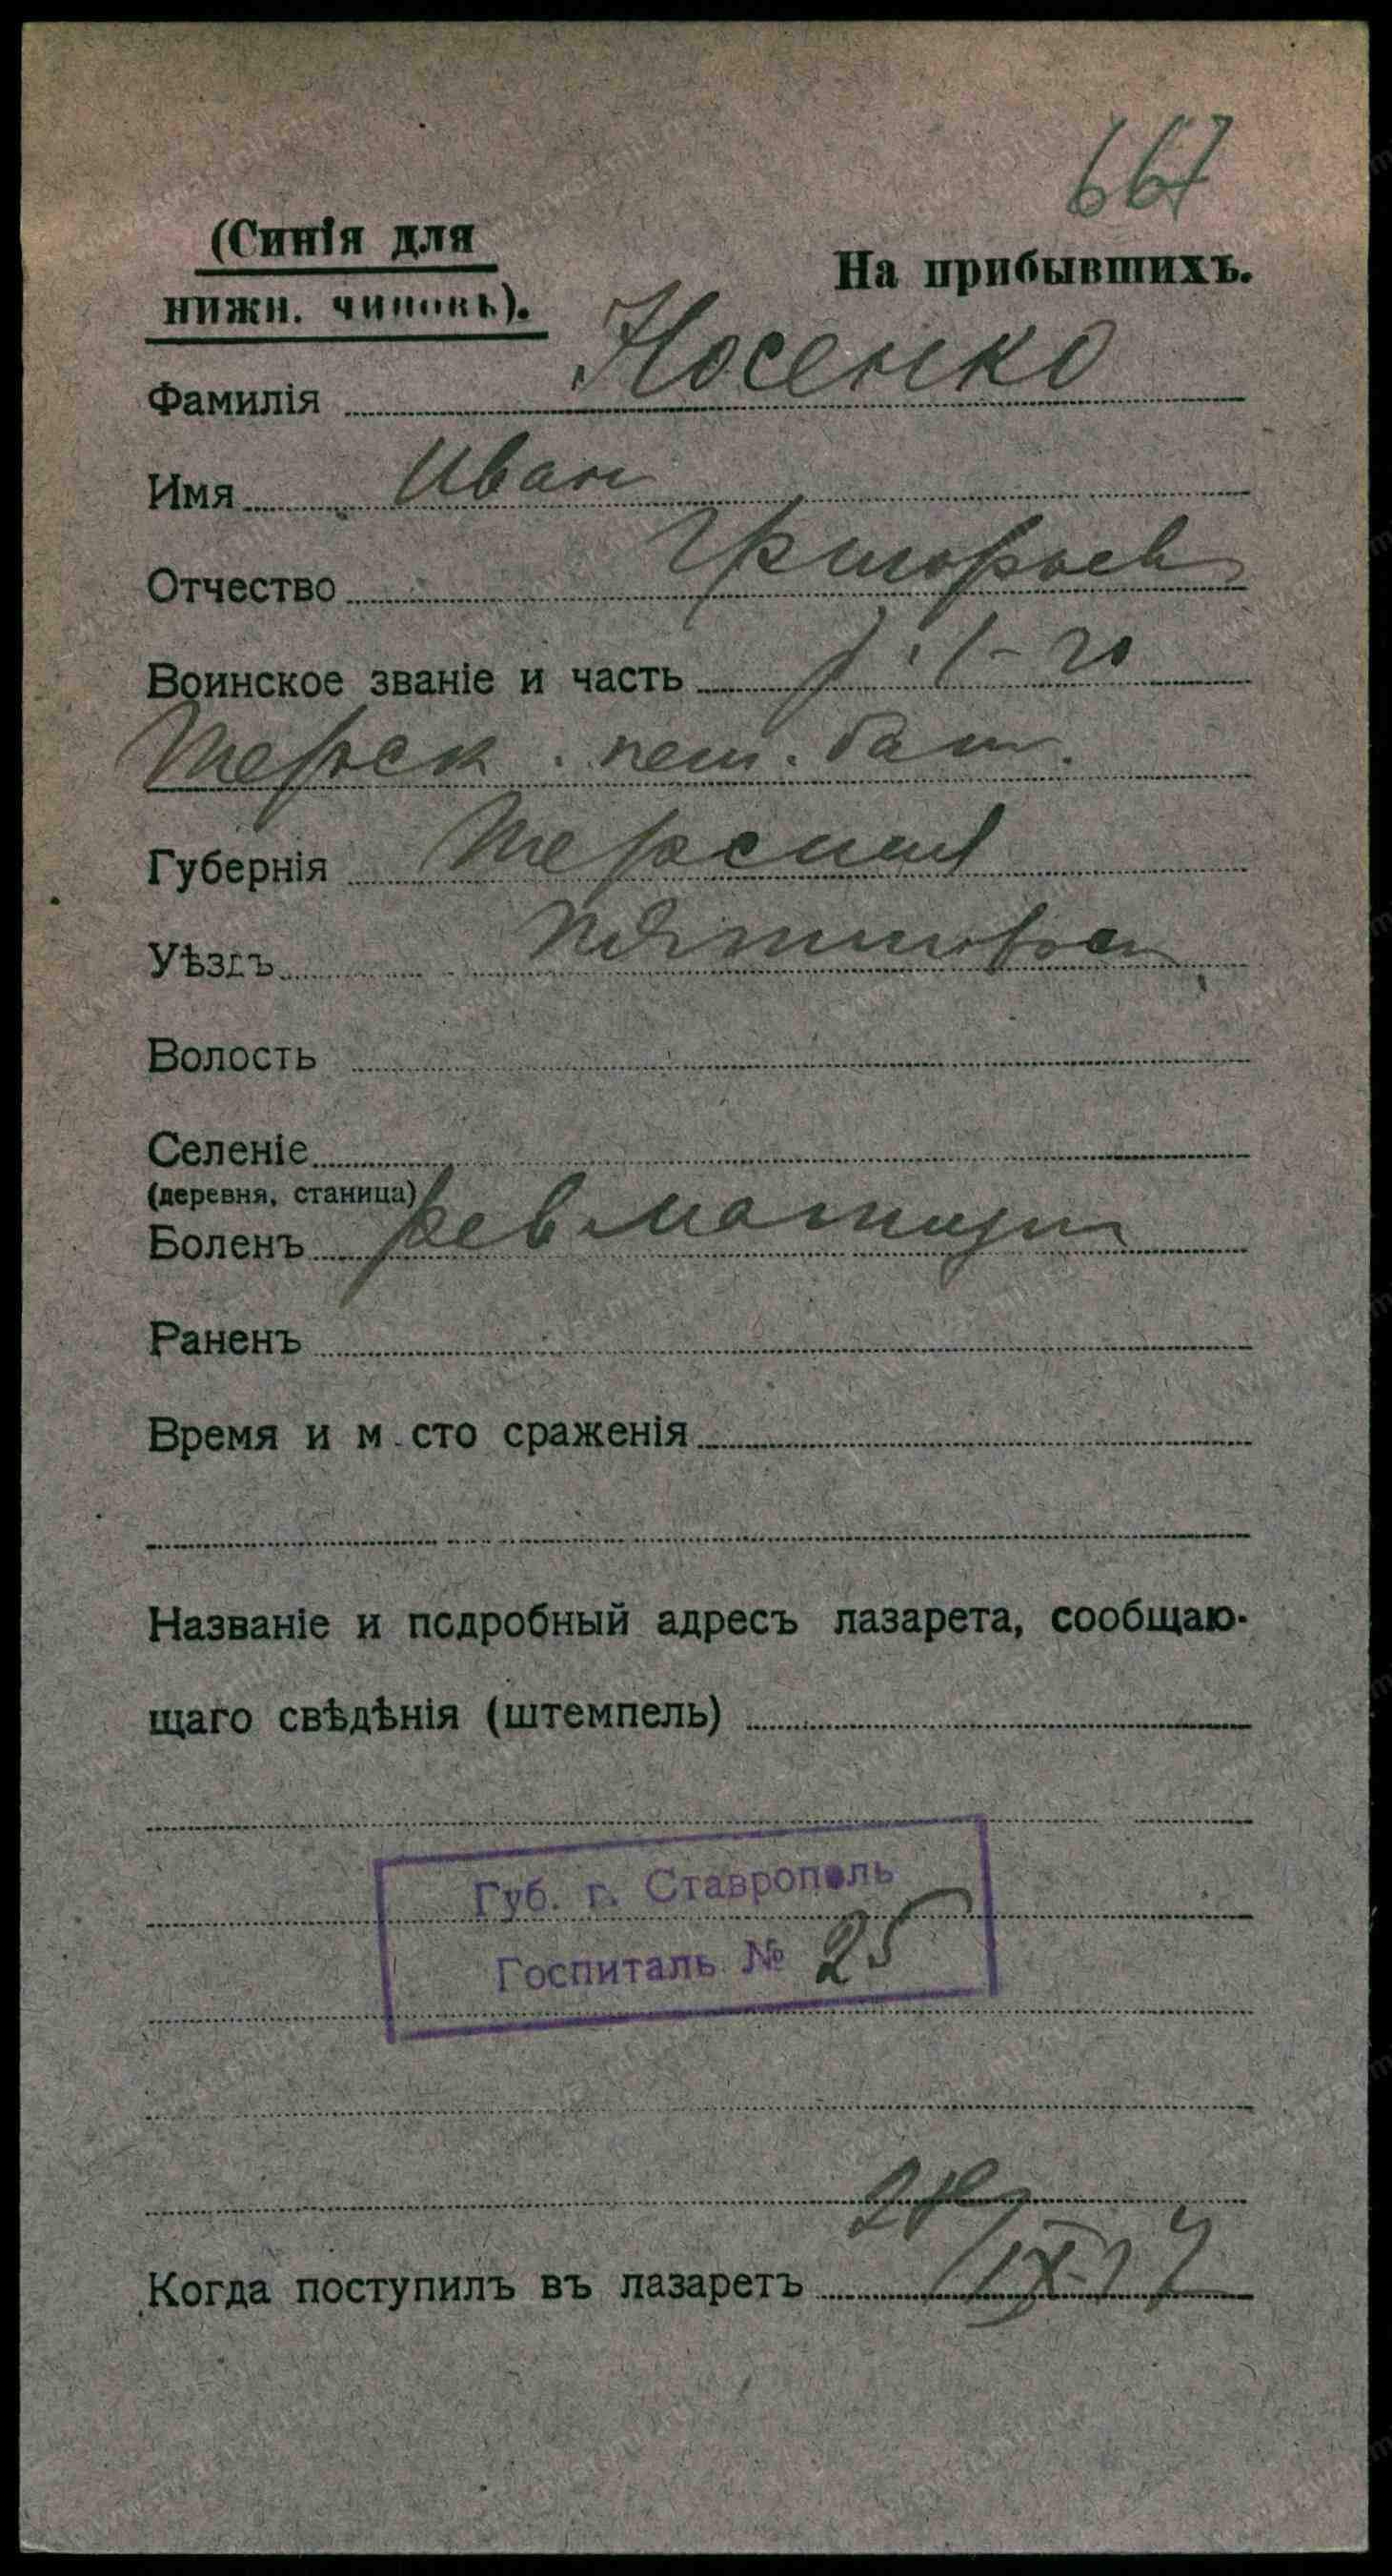 667
(Синія для
нижн. чиновъ).
На прибывшихъ.
Фамилія Носенко
Имя Иван
Отчество Григорьев
Воинское званіе и часть 1-го
Терск. пеш. бат.
Губернія Терская
Уѣздъ Пятигорск
Волость
Селеніе
(деревня, станица)
Боленъ ревматизм
Раненъ
Время и м сто сраженія
Названіе и подробный адресъ лазарета, сообщаю-
щаго свѣдѣнія (штемпель)
Губ. г. Ставрополь
Госпиталь № 25
Когда поступилъ въ лазаретъ /IX-17